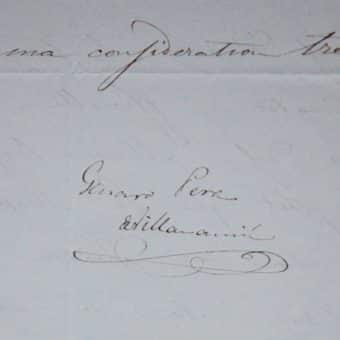 ma consideration tre
Genaro Perez
de Villaamil